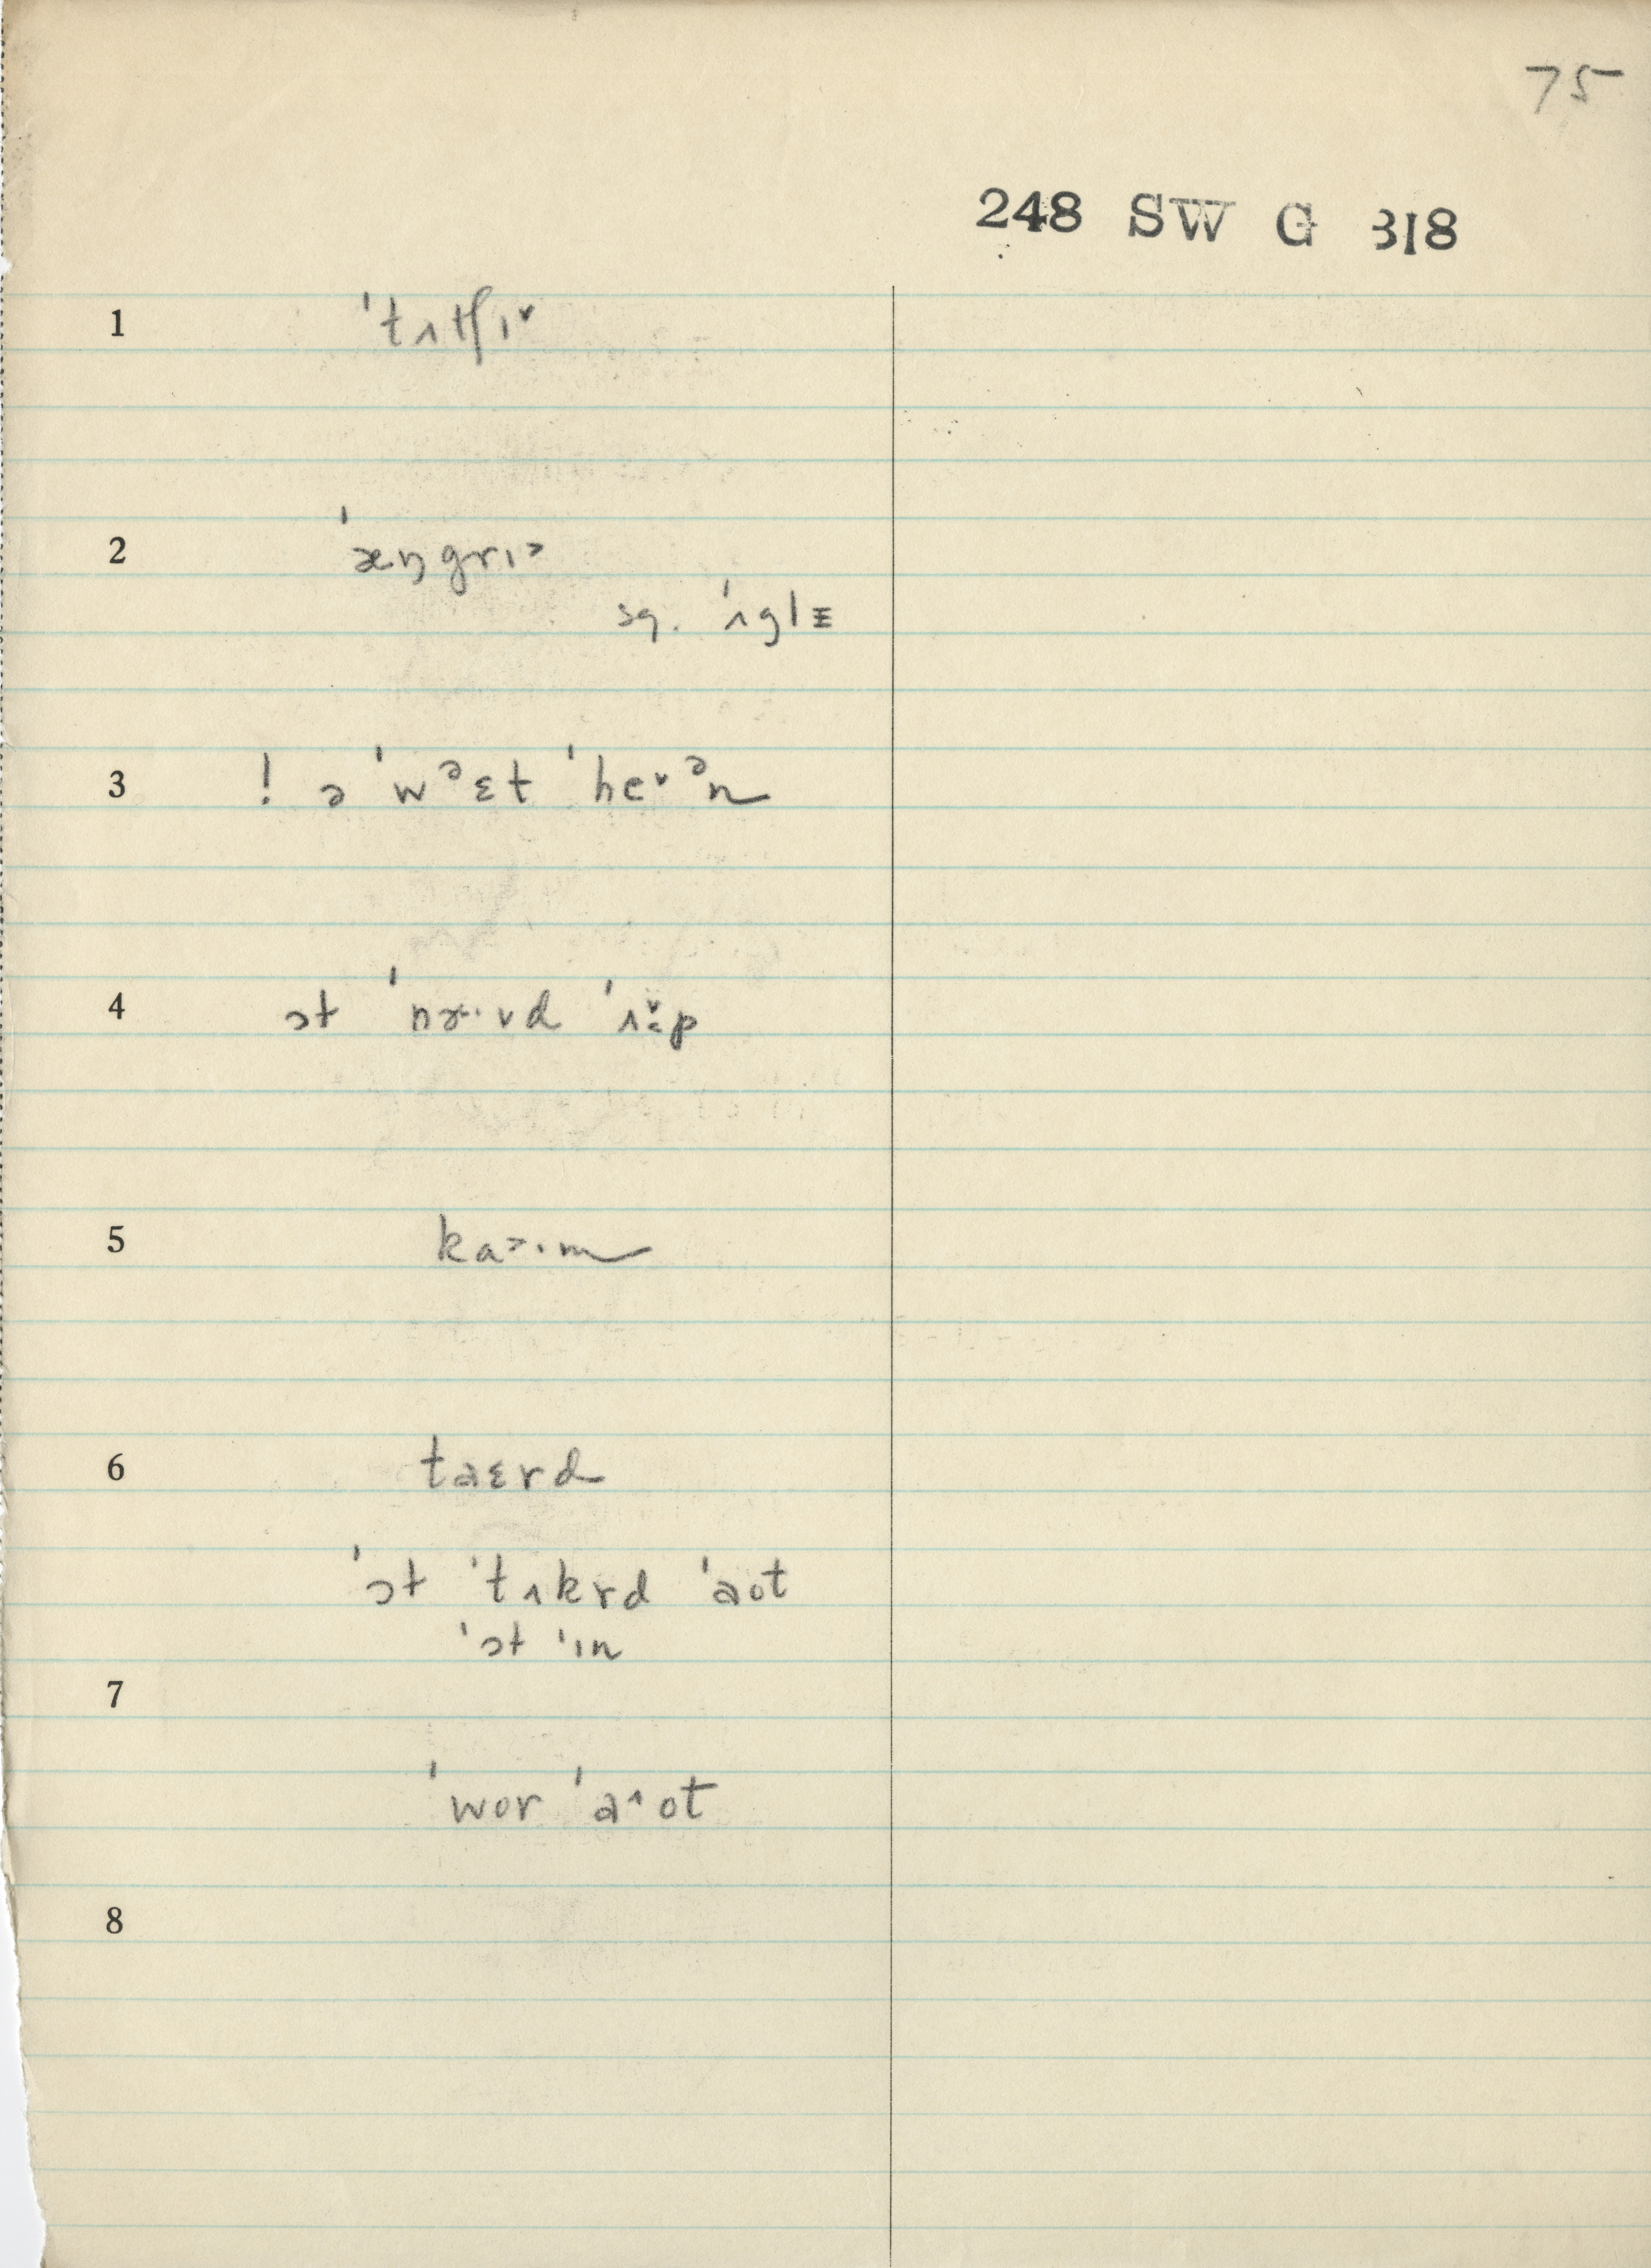 75
248 SW G 318
1 ˈtʌtʃɪ˅
2 ˈæŋgrɪ˃
sg. ˈʌglɪ
3 ! ə ˈwᵊɛt ˈhe˅ᵊn
4 ɔt ˈnɝ·vd ˈʌ˅·p
5 ka˃·m
6 taɛrd
ˈɔt ˈtʌkrd ˈaot
ˈɔt ˈɪn
7
ˈwor ˈa˄ot
8